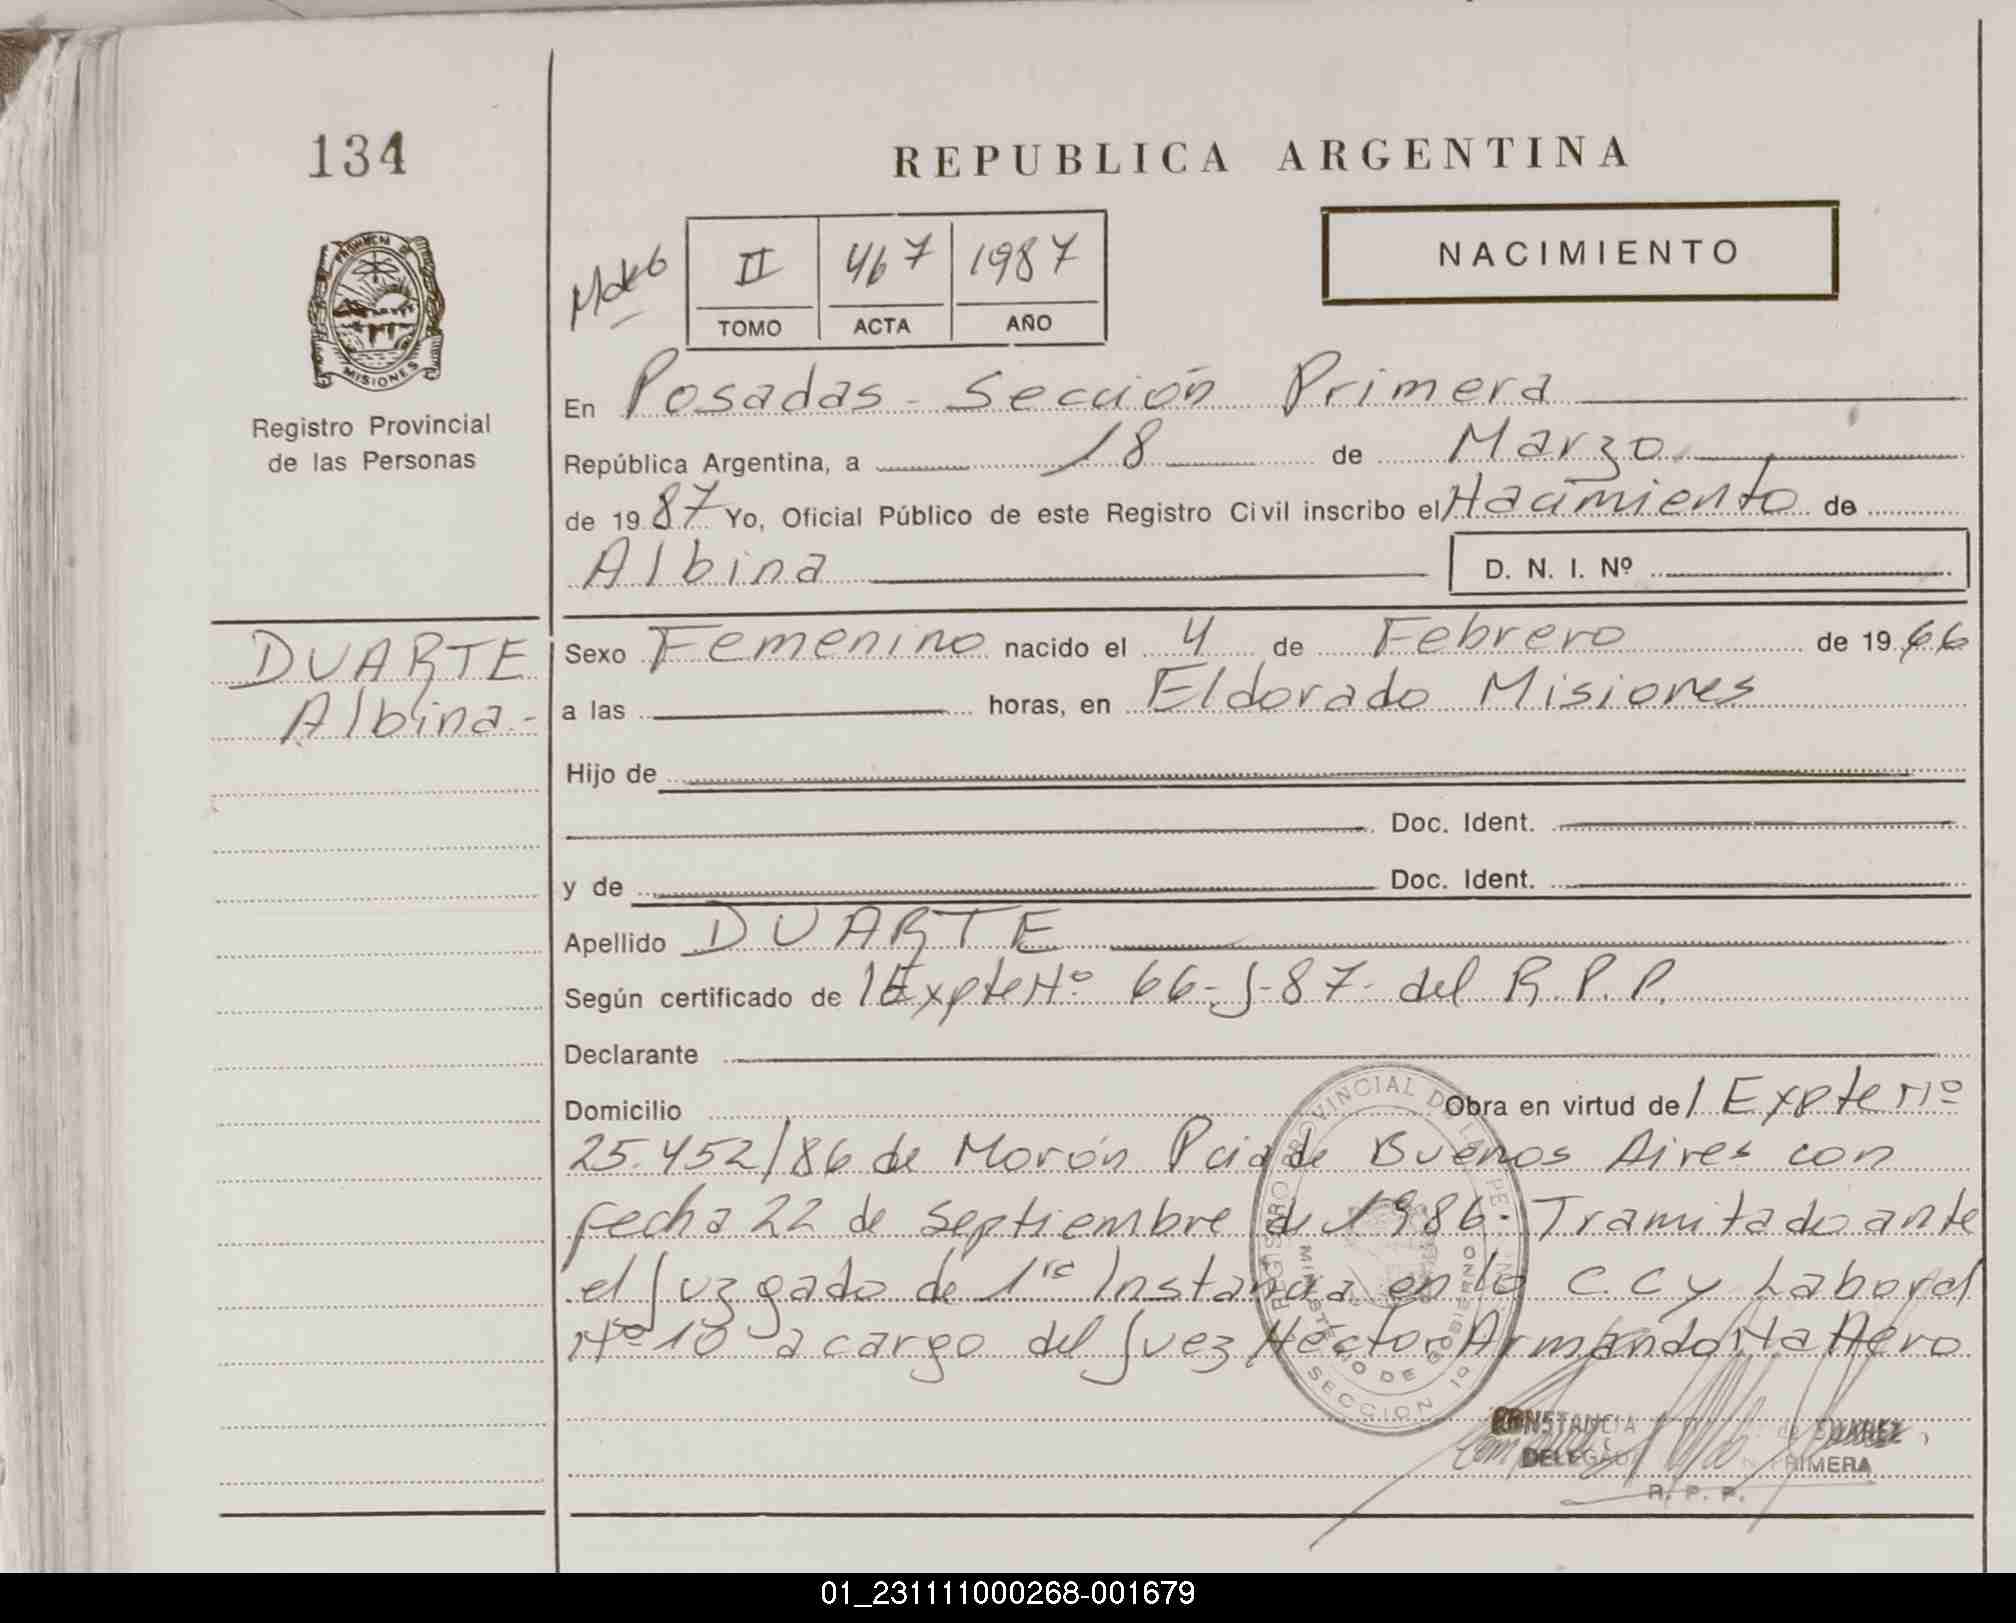 134
REPUBLICA ARGENTINA
NACIMIENTO
II 467 1987
TOMO ACTA AÑO
PROVINCIA DE
MISIONES
Registro Provincial
de las Personas
En Posadas - Sección Primera
República Argentina, a 18 de Marzo
de 1987 Yo, Oficial Público de este Registro Civil inscribo el Nacimiento de
Albina D. N. I. Nº
DUARTE
Albina.-
Sexo Femenino nacido el 4 de Febrero de 1966
a las horas, en Eldorado Misiones
Hijo de
Doc. Ident.
y de Doc. Ident.
Apellido DUARTE
Según certificado de 1 Expte Nº 66-J-87- del R.P.P.
Declarante
Domicilio Obra en virtud de 1 Expte Nº
25.452/86 de Morón Pcia de Buenos Aires con
fecha 22 de Septiembre de 1986.- Tramitado ante
el Juzgado de 1ra Instancia en lo C.C y Laboral
Nº 10 a cargo del Juez Héctor Armando
REGISTRO PROVINCIAL DE LAS PE
MINISTERIO DE GOBIERNO
SECCION 1º
CONSTANCIA de SUAREZ
DELEGADA PRIMERA
R. P. P.
01_231111000268-001679